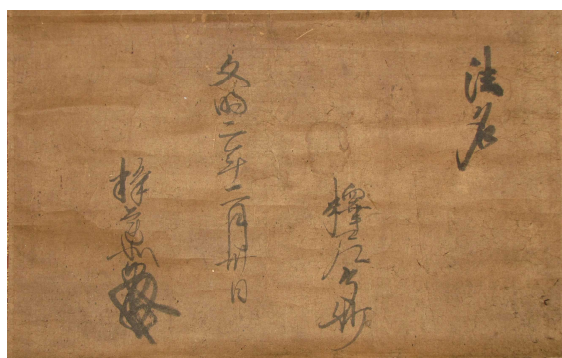 法名
釋尼妙
文明二年二月卅日
釋蓮如